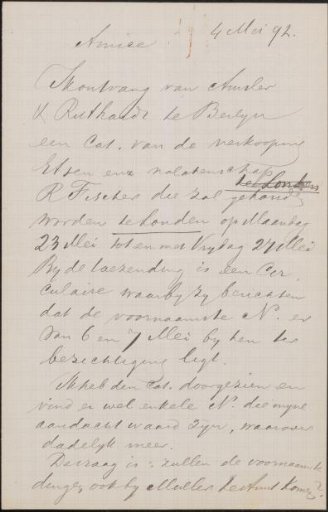 4 Mei 92.
Amice
Ik ontvang van Amsler
& Ruthardt te Berlyn
een Cat. van de verkooping
Etsen enz nalatenschap
R Fischer die zal
worden te houden op Maandag
23 Mei tot en met Vrydag 27 Mei
By de toezending is een Cir
culaire waarby zy berichten
dat de voornaamste No. er
van 6 en 7 Mei by hen ter
bezichtiging ligt.
Ik heb den Cat. doorgezien en
vind er wel enkele No. die myne
aandacht waard zyn, waarover
dadelyk meer.
De vraag is: zullen de voornaamste
dingen ook by Muller te Amst komen?